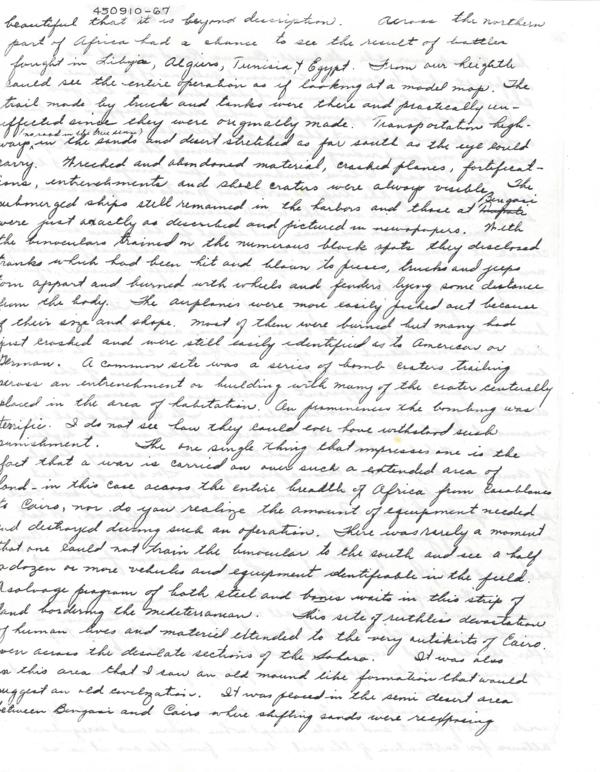 450910-67
beautiful that it is beyond discription. Across the northern
part of Africa had a chance to see the result of battles
fought in Libya, Algiers, Tunisia & Egypt. From our heights
could see the entire operation as if looking at a model map. The
trail made by truck and tanks were there and practically un-
effected since they were originally made. Transportation high-
(no road in the true sense)
ways in the sands and desert stretched as far south as the eye could
carry. Wrecked and abandoned material, crashed planes, fortificat-
ions, entrenchments and shell craters were always visible. The
Bengasi
submerged ships still remained in the harbors and those at
were just exactly as described and pictured in newspapers. With
the binoculars trained on the numerous black spots they disclosed
tanks which had been hit and blown to pieces, trucks and jeeps
torn appart and burned with wheels and fenders lying some distance
from the body. The airplanes were more easily picked out because
of their size and shape. Most of them were burned but many had
just crashed and were still easily identified as to American or
German. A common site was a series of bomb craters trailing
across an entrenchment or building with many of the crater centerally
placed in the area of habitation. On prominences the bombing was
terrific. I do not see how they could ever have withstood such
punishment. The one single thing that impresses one is the
fact that a war is carried on over such a extended area of
land - in this case across the entire breadth of Africa from Casablanca
to Cairo, nor do you realize the amount of equipment needed
and distroyed during such an operation. There was rarely a moment
that one could not train the binocular to the south and see a half
a dozen or more vehicles and equipment identifiable in the field.
A salvage program of both steel and bones waits in this strip of
land bordering the Mediterranean. This site of ruthless devastation
of human lives and materiel extended to the very outskirts of Cairo.
even across the desolate sections of the Sahara. It was also
in this area that I saw an old mound like formation that would
suggest an old civilization. It was placed in the semi desert area
between Bengasi and Cairo where shifting sands were reexposing